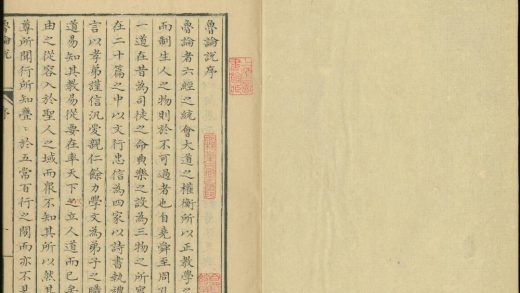 魯論說序
魯論者六經之統會大道之權衡所以正教學之
而制生人之物則於不可過者也自堯舜至周孔
一道在昔為司徒之命典樂之設為三物之所賓
在二十篇之中以文行忠信為四家以詩書執禮
言以孝弟謹信汎愛親仁餘力學文為弟子之職
道易知其教易從要在率天下之立人道而已矣
由之從容入於聖人之域而衆不知其所以然其
尊所聞行所知亹亹於五常百行之閒而亦不見
魯論說
序
一